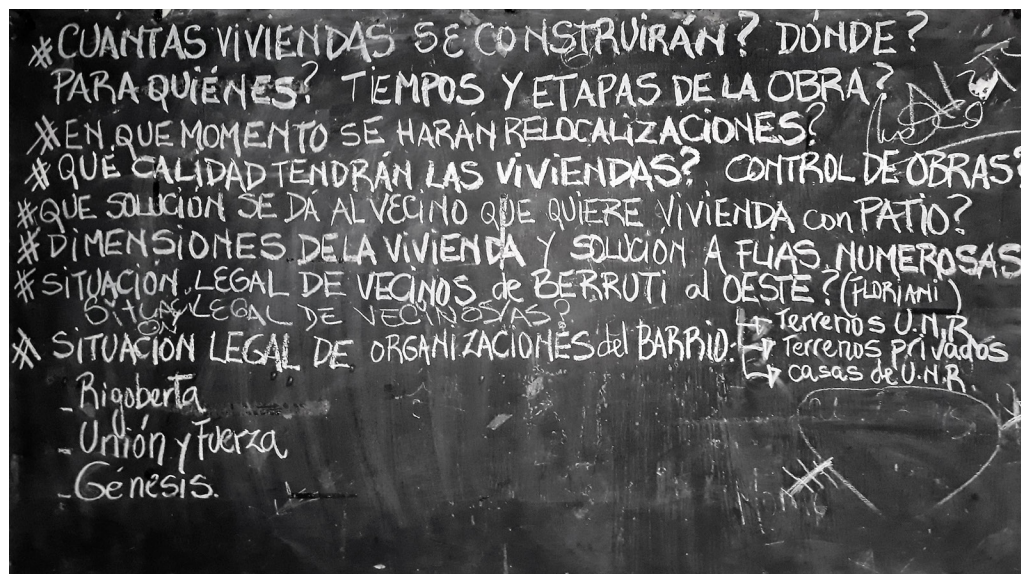 # CUANTAS ViViENDAS SE CONSTRUIRÁN? DÓNDE?
PARA QUIÉNES? TIEMPOS Y ETAPAS DE LA OBRA?
# EN QUE MOMENTO SE HARÁN RELOCALiZACiONES?
# QUÉ CALIDAD TENDRÁN LAS ViViENDAS? CONTROL DE OBRAS?
# QUE SOLUCIÓN SE DÁ AL VECINO QUE QUIERE ViViENDA con PATIO?
# DiMENSiONES DE LA ViViENDA Y SOLUCIÓN A FLIAS. NUMEROSAS
# SiTUACiÓN LEGAL DE VECiNOS de BERRUTi al OESTE? (FLORIANi)
SITUACION LEGAL DE VECINOS/AS?
# SiTUACiÓN LEGAL DE ORGANiZACiONES del BARRiO.
Terrenos U.N.R
Terrenos privados
casas de U.N.R.
- Rigoberta
- Unión y Fuerza
- Génesis.